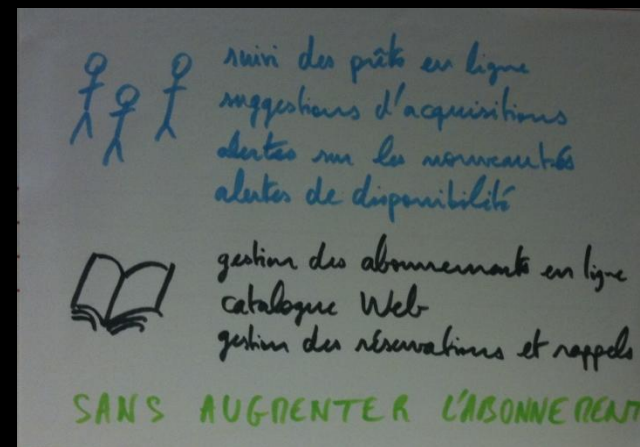 suivi des prêts en ligne
suggestions d'acquisitions
alertes sur les nouveautés
alertes de disponibilité
gestion des abonnements en ligne
catalogue Web
gestion des réservations et rappels
SANS AUGMENTER L'ABONNEMENT